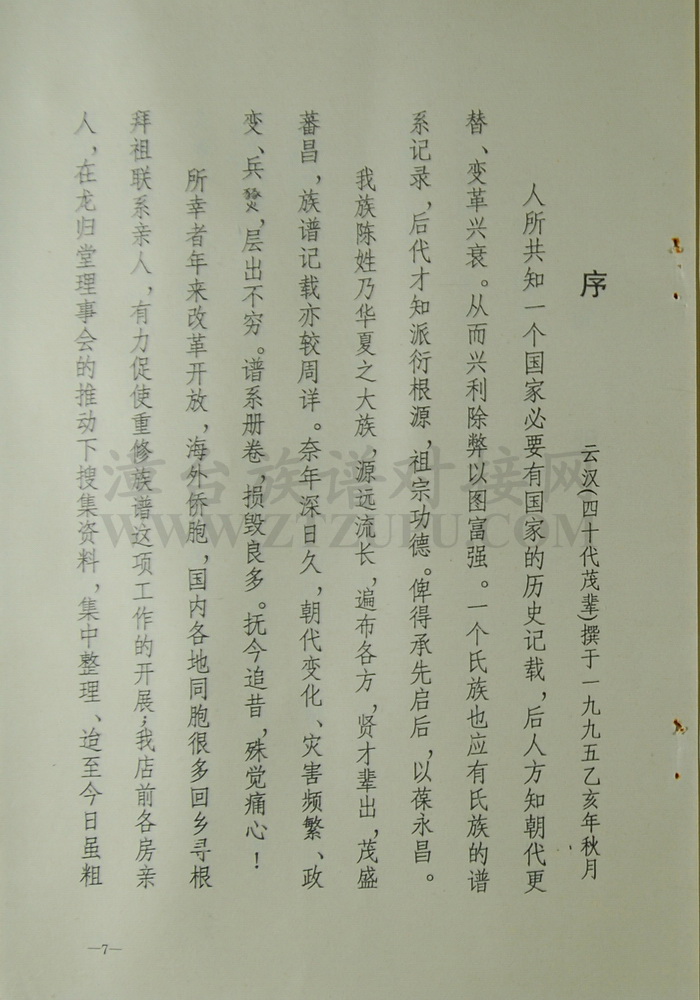 序
云汉(四十代茂辈)撰于一九九五乙亥年秋月
人所共知一个国家必要有国家的历史记载，后人方知朝代更
替、变革兴衰。从而兴利除弊以图富强。一个氏族也应有氏族的谱
系记录，后代才知派衍根源，祖宗功德。俾得承先启后，以葆永昌。
我族陈姓乃华夏之大族，源远流长，遍布各方，贤才辈出，茂盛
蕃昌，族谱记载亦较周详。奈年深日久，朝代变化、灾害频繁、政
变、兵燹，层出不穷。谱系册卷，损毁良多。抚今追昔，殊觉痛心！
所幸者年来改革开放，海外侨胞，国内各地同胞很多回乡寻根
拜祖联系亲人，有力促使重修族谱这项工作的开展；我店前各房亲
人，在龙归堂理事会的推动下搜集资料，集中整理、迨至今日虽粗
—7—
漳台族谱对接网
WWW.ZTZUPU.COM